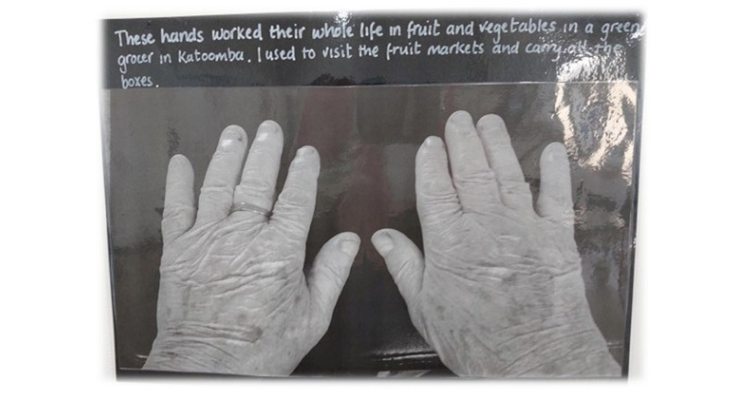 These hands worked their whole life in fruit and vegetables in a green
grocer in Katoomba. I used to visit the fruit markets and carry all the
boxes.